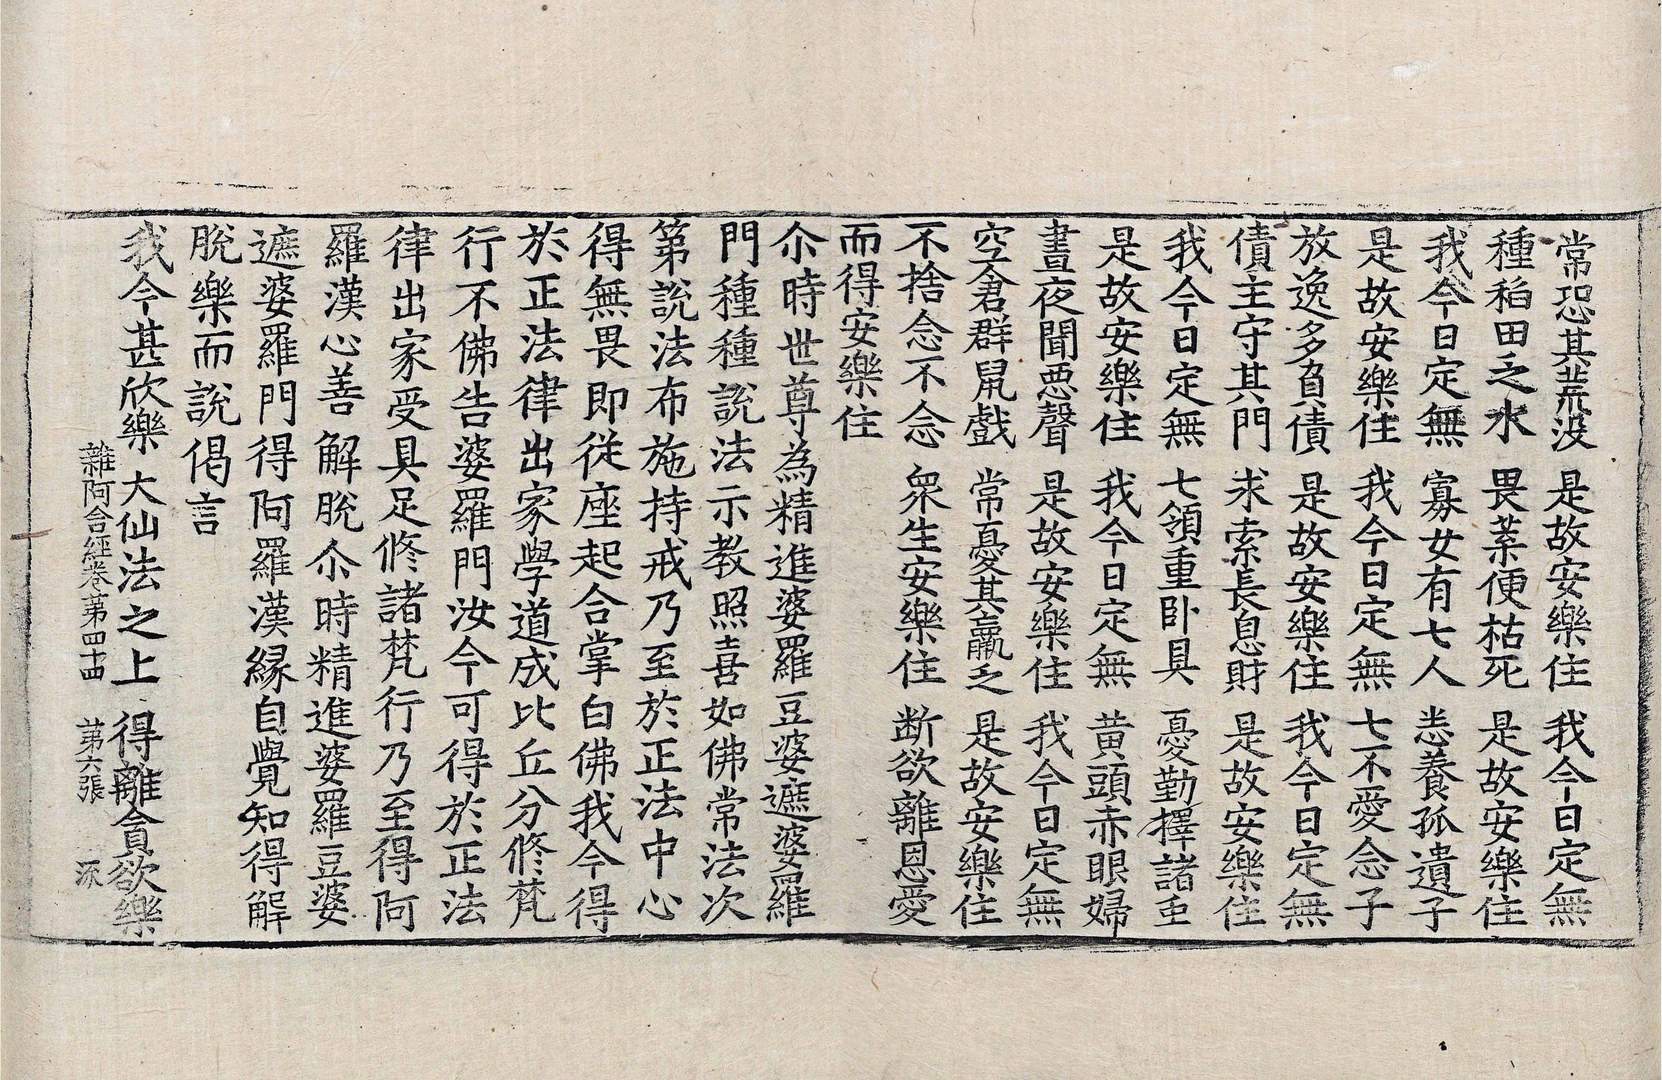 常恐其荒没 是故安樂住 我今日定無
種稻田乏水 畏葉便枯死 是故安樂住
我今日定無 寡女有七人 恙養孤遺子
是故安樂住 我今日定無 七不愛念子
放逸多負債 是故安樂住 我今日定無
債主守其門 求索長息財 是故安樂住
我今日定無 七領重卧具 憂勤擇諸虫
是故安樂住 我今日定無 黄頭赤眼婦
晝夜聞惡聲 是故安樂住 我今日定無
空倉群鼠戲 常憂其羸乏 是故安樂住
不捨念不念 衆生安樂住 断欲離恩愛
而得安樂住
尒時世尊為精進婆羅豆婆遮婆羅
門種種說法示教照喜如佛常法次
第說法布施持戒乃至於正法中心
得無畏即從座起合掌白佛我今得
於正法律出家學道成比丘分修梵
行不佛告婆羅門汝今可得於正法
律出家受具足修諸梵行乃至得阿
羅漢心善解脫尒時精進婆羅豆婆
遮婆羅門得阿羅漢緣自覺知得解
脫樂而說偈言
我今甚欣樂 大仙法之上 得離貪欲樂
雜阿含經卷第四十四 第六張